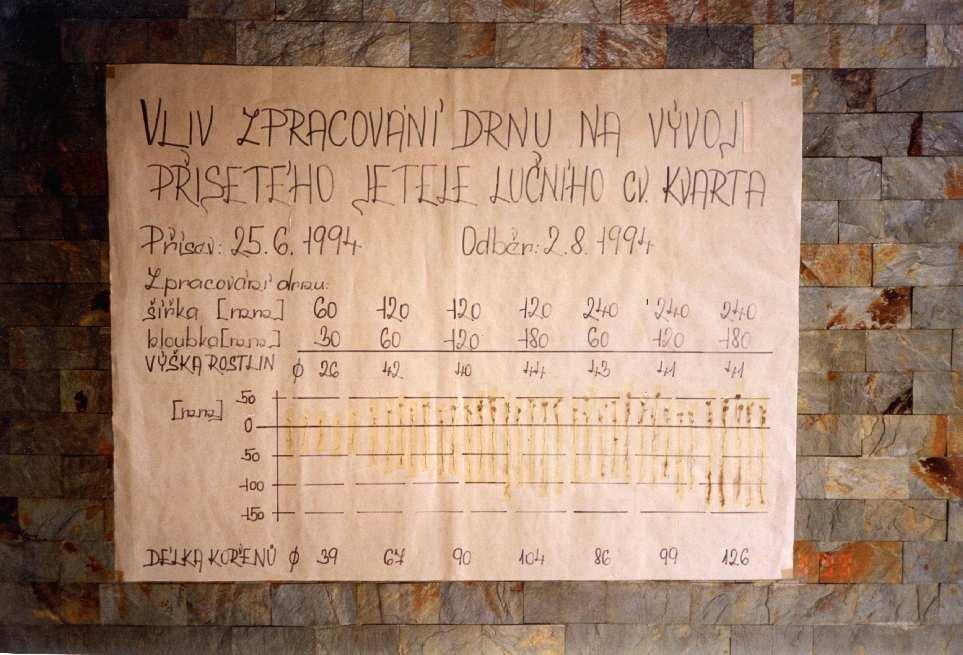 VLIV ZPRACOVÁNÍ DRNU NA VÝVOJ
PŘISETÉHO JETELE LUČNÍHO CV. KVARTA
Přísev: 25.6. 1994 Odběr: 2.8. 1994
Zpracování drnu:
šířka [mm] 60 120 120 120 240 240 240
hloubka [mm] 30 60 120 180 60 120 180
VÝŠKA ROSTLIN ϕ 26 42 40 44 43 41 41
[mm] 50
0
-50
-100
-150
DÉLKA KOŘENŮ ϕ 39 67 90 104 86 99 126